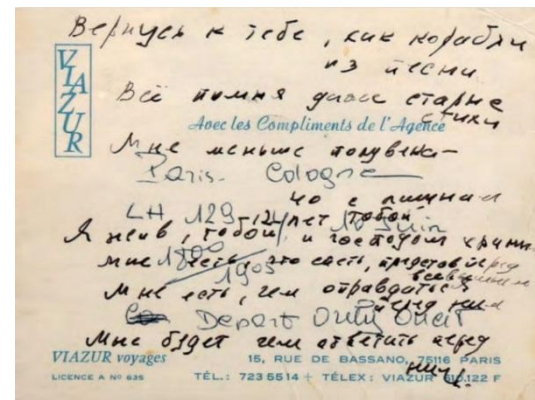 Вернусь к тебе, как корабли
из песни
Всё помня даже старые
стихи
VIAZUR
Avec les Compliments de l'Agence
Мне меньше полувека—
Paris - Cologne
с лишним
LH 129
12 лет тобой
10 Juin
Я жив, тобой и господом храним
1800
1905
Мне есть, что спеть, представ перед
всевышним
Мне есть, чем оправдаться
перед ним
Depart Orly Ouest
Мне будет чем ответить перед
ним.
VIAZUR voyages
15, RUE DE BASSANO, 75116 PARIS
LICENCE A Nº 635
TÉL.: 723 55 14 + TÉLEX: VIAZUR 610.122 F